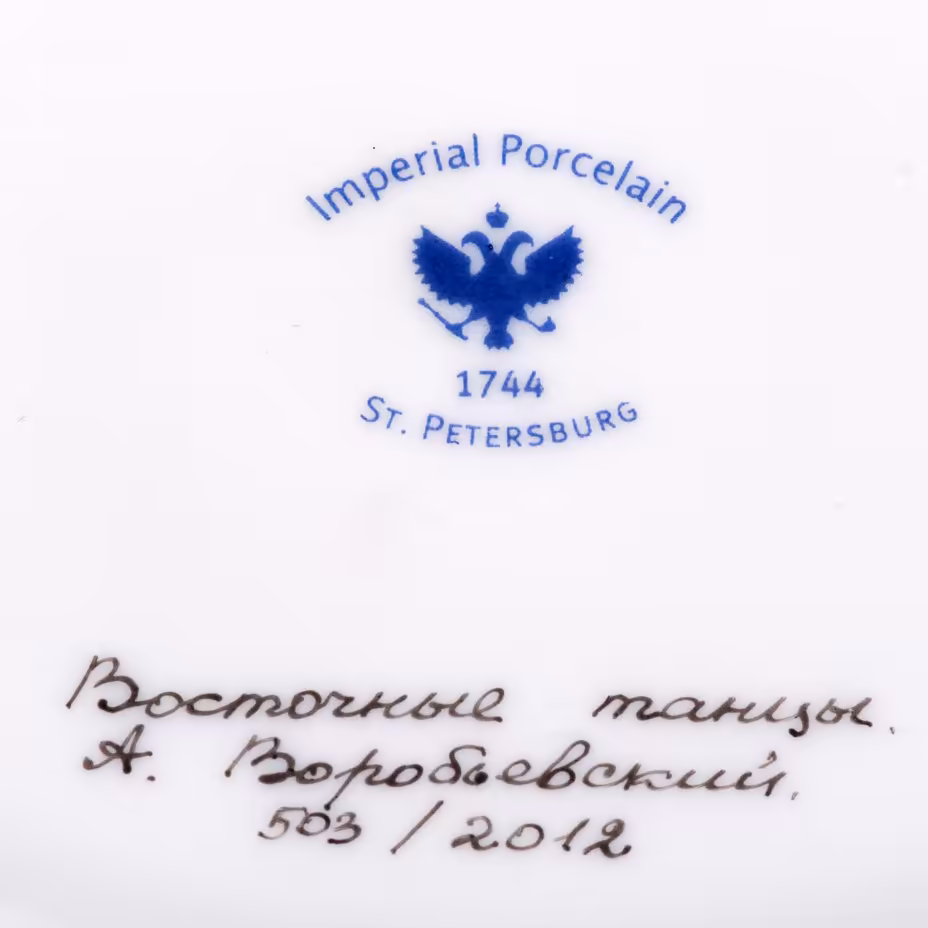 Imperial Porcelain
1744
ST. PETERSBURG
Восточные танцы.
А. Воробьевский.
503 / 2012